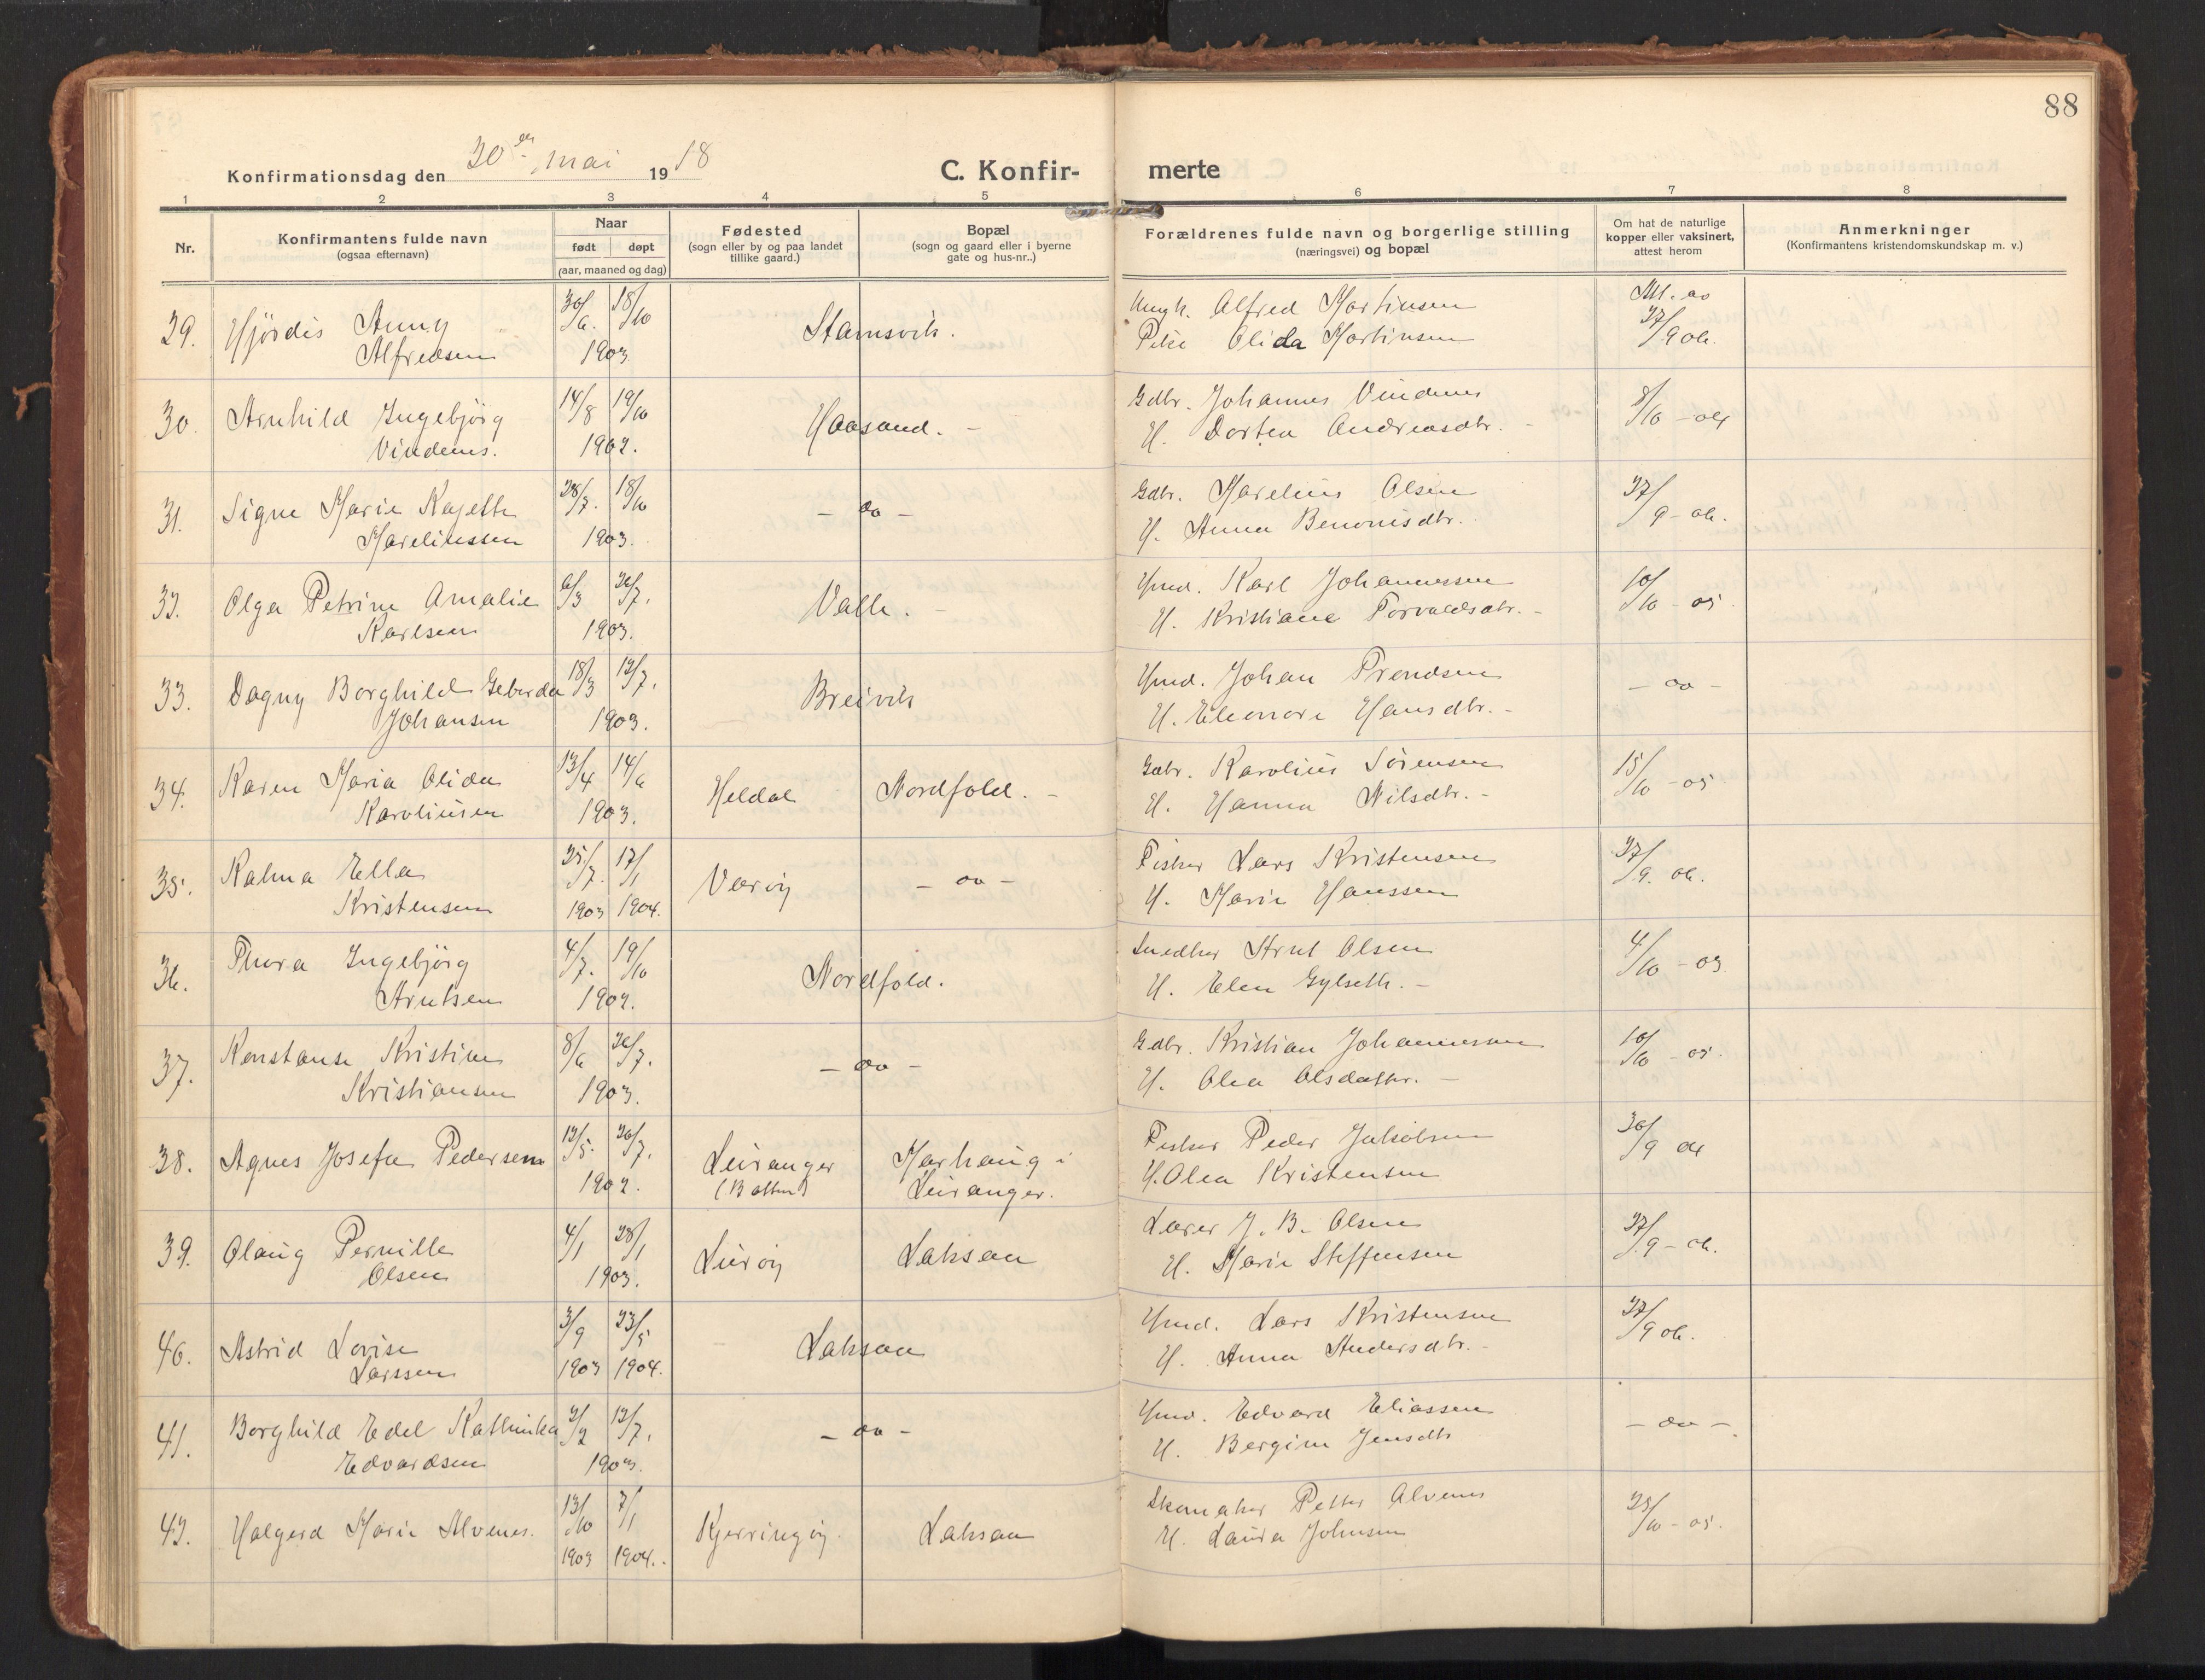 88
Konfirmationsdag den 30te mai 1918
C. Konfir-
merte
1 2 3 4 5 6 7 8
Nr.
Konfirmantens fulde navn
(ogsaa efternavn)
Naar
født døpt
(aar, maaned og dag)
Fødested
(sogn eller by og paa landet
tillike gaard.)
Bopæl
(sogn og gaard eller i byerne
gate og hus-nr.)
Forældrenes fulde navn og borgerlige stilling
(næringsvei) og bopæl
Om hat de naturlige
kopper eller vaksinert,
attest herom
Anmerkninger
(Konfirmantens kristendomskundskap m. v.)
29. Hjørdis Anny 30/6. 18/10 Stamsvik. Ungk. Alfred Martinsen
Alfredsen 1903 Pike Olida Martinsen 27/9 06.
30. Arnhild Ingebjørg 14/8 19/10 Haasand. - Gdbr. Johannes Vindenes 8/10 - 04
Vindenes. 1902. H. Dortea Andreasdtr. -
31. Signe Marie Kajette 28/7. 18/10 - do - Gdbr. Marelius Olsen 27/9 - 06.
Mareliussen 1903. H. Anna Benonisdtr.
32. Olga Petrine Amalie 6/3 26/7. Valle. - Hmd. Karl Johannessen 10/10 - 05
Karlsen 1903. H. Kristiane Torvaldsdtr. -
33. Dagny Borghild Geburda 18/3 12/7. Breivik Hmd. Johan Trondsen - do -
Johansen 1903. H. Eleonore Hansdtr. -
34. Karen Maria Olida 13/4 14/6 Heldal Nordfold. - Gdbr. Karolius Sørensen 15/10 - 05
Karoliusen 1903. H. Hanna Nilsdtr. -
35. Kalma Ella 25/7. 17/1 Værøy - do - Fisker Lars Kristensen 27/9. 06.
Kristensen 1903 1904. H. Marie Hanssen
36. Thora Ingebjørg 4/7. 19/10 Nordfold. Snedker Arnt Olsen 4/10 - 03
Arntsen 1902. H. Elen Gylseth. -
37. Konstanse Kristine 8/6 26/7. - do - Gdbr. Kristian Johannessen 10/10 - 05.
Kristiansen 1903. H. Olea Olsdatter. -
38. Agnes Josefa Pedersen 12/5. 20/7. Leiranger Marhaug i Fisker Peder Jakobsen 30/9 04
1902. Leiranger. H. Olea Kristensen
39. Olaug Pernille 4/1 28/1 Lurøy Laksaa Lærer J. B. Olsen 27/9 - 06.
Olsen 1903. H. Marie Steffensen
40. Astrid Lovise 3/9 23/5 Laksaa Hmd. Lars Kristensen 27/9 06.
Larssen 1903 1904. H. Anna Andersdtr. -
41. Borghild Edel Kathinka 2/2 12/7. - do - Hmd. Edvard Eliassen - do -.
Edvardsen 1903. H. Bergine Jensdtr
42. Halgerd Marie Alvenes. 13/10 7/1 Kjerringøy. Laksaa Skomaker Petter Alvenes 25/10 - 05.
1903 1904. H. Laura Johnsen